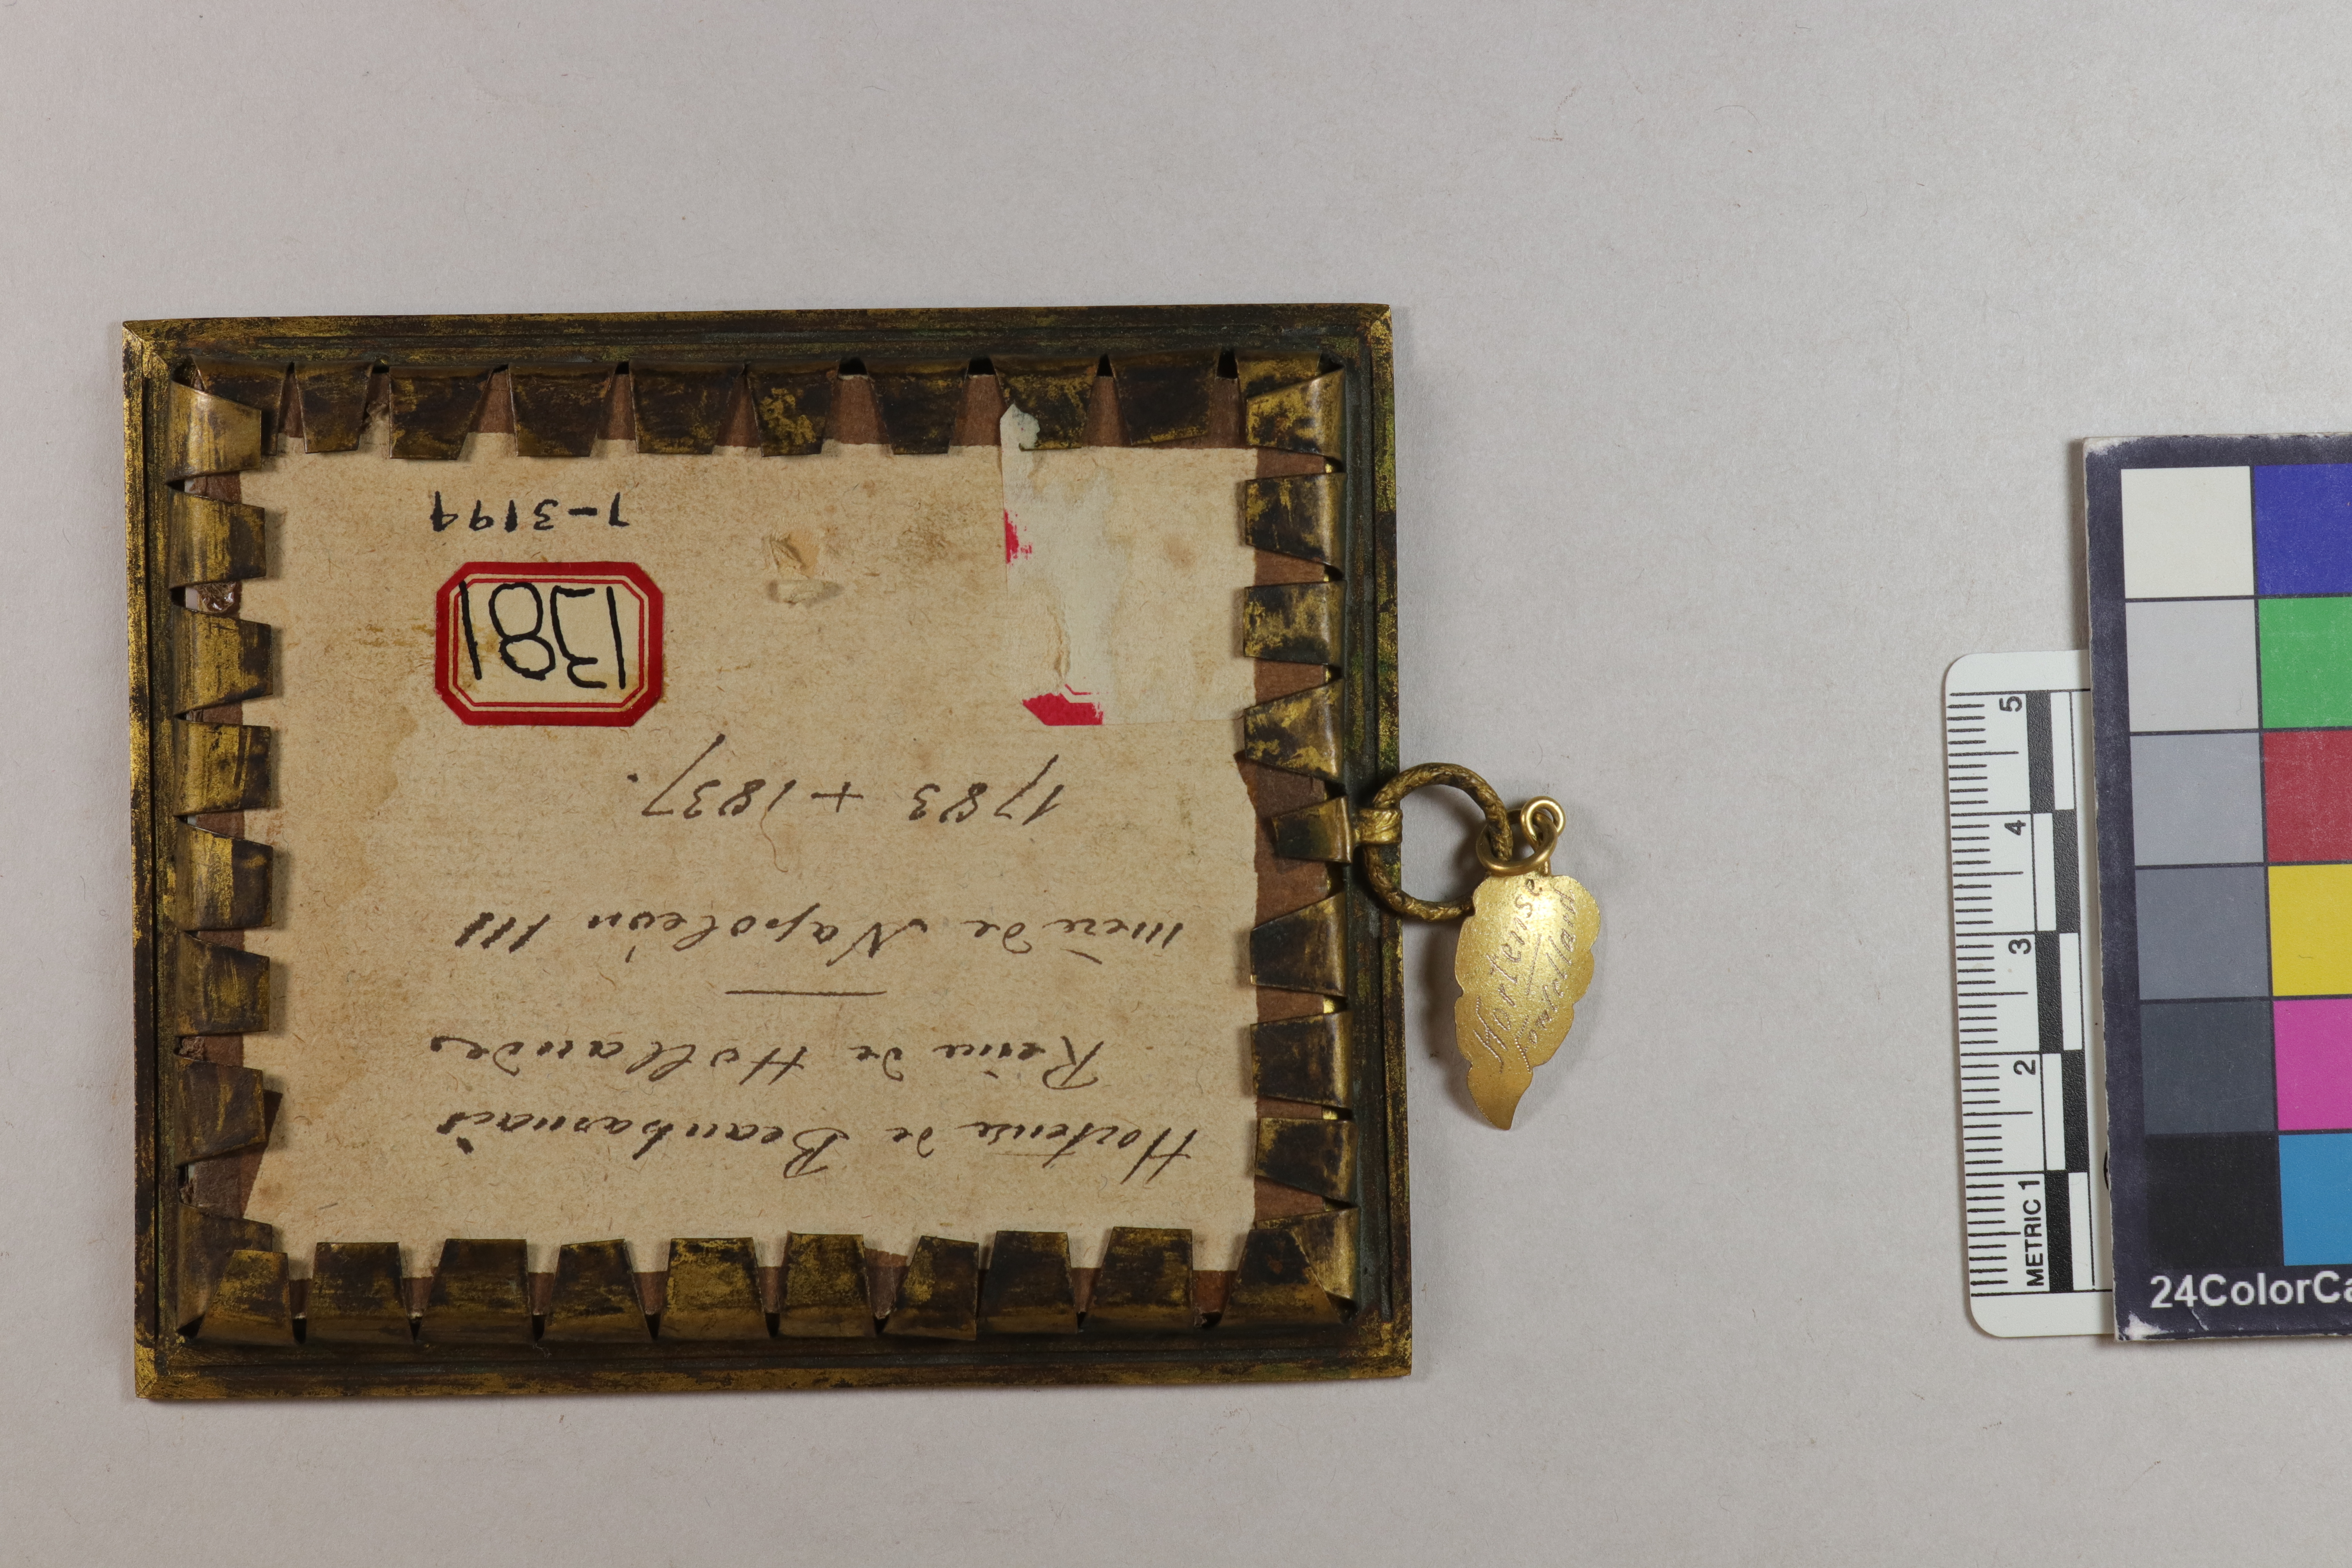 Hortense de Beauharnais
Reine de Hollandes
mère de Napoléon III
1783 + 1837.
1381
1-3199
Hortense
5
4
3
2
METRIC 1
24ColorCa